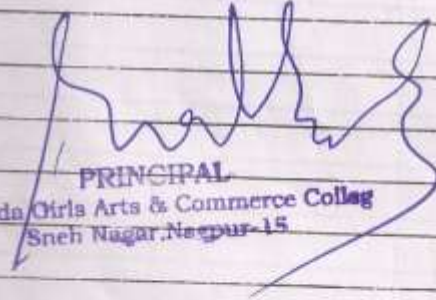 PRINCIPAL
da Girls Arts & Commerce Colleg
Sneh Nagar, Nagpur-15